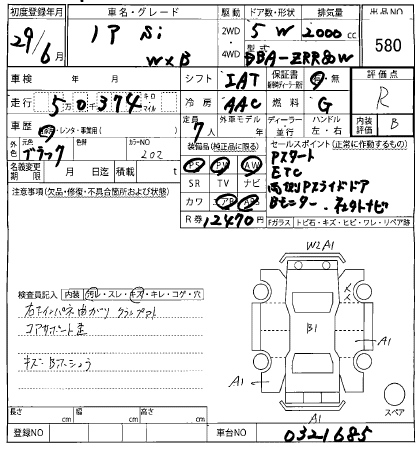 初度登録年月 車名・グレード 駆動 ドア数・形状 排気量 出品NO
29/6月 IP Si W×B 2WD・4WD 5 W 2000cc 580
型式 DBA-ZRR80W
車検 年 月 シフト IAT 保証書 有・無 評価点 R
走行 5万0千374 キロ マイル 冷房 AAC 燃料 G
車歴 自家・レンタ・事業用( ) 定員 7人 外車モデル 年 ディーラー 並行 ハンドル 左・右 内装評価 B
外色 元色 ブラック 色替 カラーNO 202
名義変更期限 月 日迄 積載 t
装備品(純正品に限る) PS PW AW
SR TV ナビ
カワ エアB ABS
R券 12470円
セールスポイント(正常に作動するもの)
Pスタート
ETC
両側Pスライドドア
Bモニター
注意事項(欠品・修復・不具合箇所および状態)
Fガラス トビ石・キズ・ヒビ・ワレ・リペア跡
検査員記入 内装 汚レ・スレ・キズ・キレ・コゲ・穴
右インパネ曲がり
コアサポート歪
W2 A1
B1
A1
A1
A1
スペア
長さ cm 幅 cm 高さ cm
登録NO 車台NO 0321685